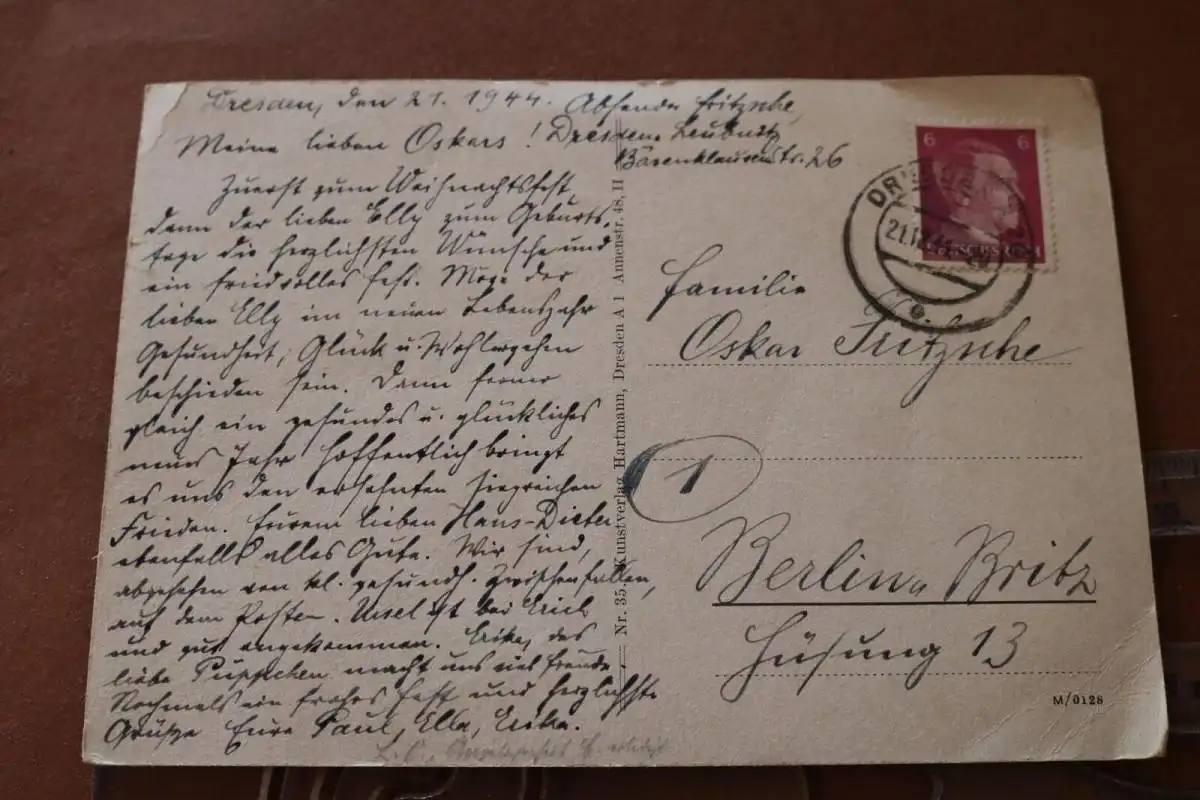 Dresden, den 21. 1944. Absender Fritzsche,
Meine lieben Oskars! Dresden-Leubnitz
Bärenklauserstr. 26
Zuerst zum Weihnachtsfest,
dann der lieben Elly zum Geburts-
tage die herzlichsten Wünsche und
ein friedvolles Fest. Möge der
lieben Elly im neuen Lebensjahr
Gesundheit, Glück u. Wohlergehen
beschieden sein. Dann ferner
gleich ein gesundes u. glückliches
neues Jahr hoffentlich bringt
es uns den ersehnten siegreichen
Frieden. Eurem lieben Hans-Dieter
ebenfalls alles Gute. Wir sind,
abgesehen von kl. gesundh. Zwischenfällen,
auf dem Posten. Ursel ist bei Erich
und gut angekommen. Erika, das
liebe Püppchen macht uns viel Freude
Nochmals ein frohes Fest und herzlichste
Grüße Eure Paul, Ella, Erika.
Nr. 35. Kunstverlag Hartmann, Dresden A 1 Annenstr. 48, II
6 6
21.
Familie
Oskar Fritzsche
1
Berlin-Britz
Hüsung 13
M/0128